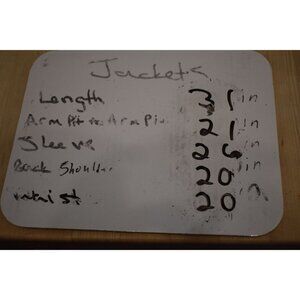 Jackets
Length 31 in
Arm Pit to Arm Pit 21 in
Sleeve 26 in
Back Shoulder 20 in
Waist 20 in